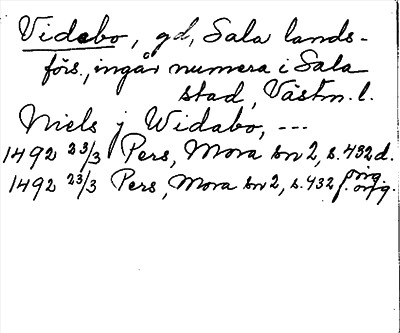 Videbo, gd, Sala lands-
förs., ingår numera i Sala
stad, Västm. l.
Niels j Widabo, ---
1492 23/3 Pers, Mora bn 2, s. 432 d.
1492 23/3 Pers, Mora bn 2, s. 432 f. orig.